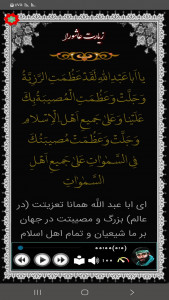 زیارت عاشورا
یا اَباعَبدِاللهِ لَقَدْ عَظُمَتِ الرَّزِیَّةُ
وَجَلَّتْ وَعَظُمَتِ الْمُصیبَةُ بِکَ
عَلَیْنا وَعَلی جَمیعِ اَهْلِ الْاِسْلامِ
وَجَلَّتْ وَعَظُمَتْ مُصیبَتُکَ
فِی السَّمواتِ عَلی جَمیعِ اَهْلِ
السَّمواتِ
ای ابا عبد الله همانا تعزیتت (در
عالم) بزرگ و مصیبتت در جهان
بر ما شیعیان و تمام اهل اسلام